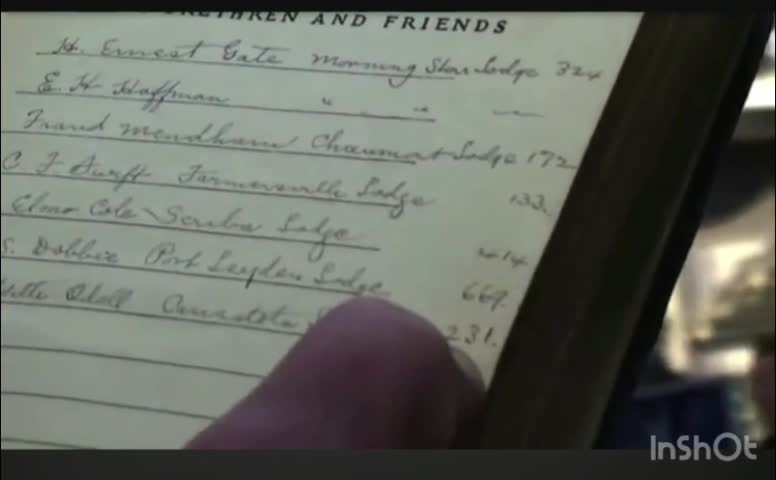 BRETHREN AND FRIENDS
H. Ernest Gate Morning Star Lodge 324
E. H. Hoffman " "
Mendham Chaumont Lodge 172
C. F. Farmersville Lodge 133.
Elmo Cole Scriba Lodge 414
S. Dobbie Port Leyden Lodge 669.
Odell Canastota 231.
InShOt